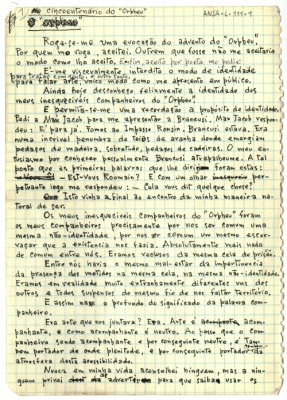 Cinquentenário do "Orpheu"
ANSA-L-111-1
Roga-se-me uma evocação do advento do "Orpheu".
Por quem me roga, aceitei. Outrem que fosse não me aceitaria
o modo como lho aceito. Enfim, aceito por posto no
É-me visceralmente interdito o modo de identidade
para fazer arte único modo como me apresento em público.
Ainda hoje desconheço felizmente a identidade dos
meus inesquecíveis companheiros do "Orpheu".
E permita-se-me uma recordação a propósito de identidade.
Pedi a Max Jacob para me apresentar a Brancusi. Max Jacob respon-
deu: É para já. Fomos ao Impasse Ronsin, Brancusi estava. Era
numa incrível penumbra de teias de aranha donde emergiam
pedaços de madeira, sobretudo, pedaços de cadeiras. O meu en-
tusiasmo por conhecer pessoalmente Brancusi atrapalhou-me. A tal
ponto que as primeiras palavras que lhe dirigi foram estas:
— Est-Vous Roumain? E com um olhar
petuante logo me respondeu: — Cela vous dit quelque chose?
Isto vinha afinal ao encontro da minha maneira na-
tural de ser.
Os meus inesquecíveis companheiros do "Orpheu" foram
os meus companheiros precisamente por nos ser comum uma
mesma não-identidade: por nos ser comum um mesmo escar-
vaçar que a existência nos fazia. Absolutamente mais nada
de comum entre nós. Éramos reclusos da mesma cela de prisão.
Entre nós havia o mesmo mal-estar da impertinência
da presença dos metidos na mesma cela, na mesma não-identidade.
Éramos em realidade muito estranhamente diferentes uns dos
outros e todos suspensos do mesmo fio de nos faltar Território.
É assim o profundo do significado da palavra com-
panheiro.
Era arte que nos juntava? Era. Arte é acom-
panhante, e como acompanhante é neutro. Ao passo que o Com-
panheiro sendo acompanhante e por conseguinte neutro, é Tam-
bem portador de onde plenitude, e por conseguinte portador da
atmosfera desta acessibilidade.
Nunca em minha vida aconselhei ninguém, mas a nin-
guem privei de advertência para que saiba usar os